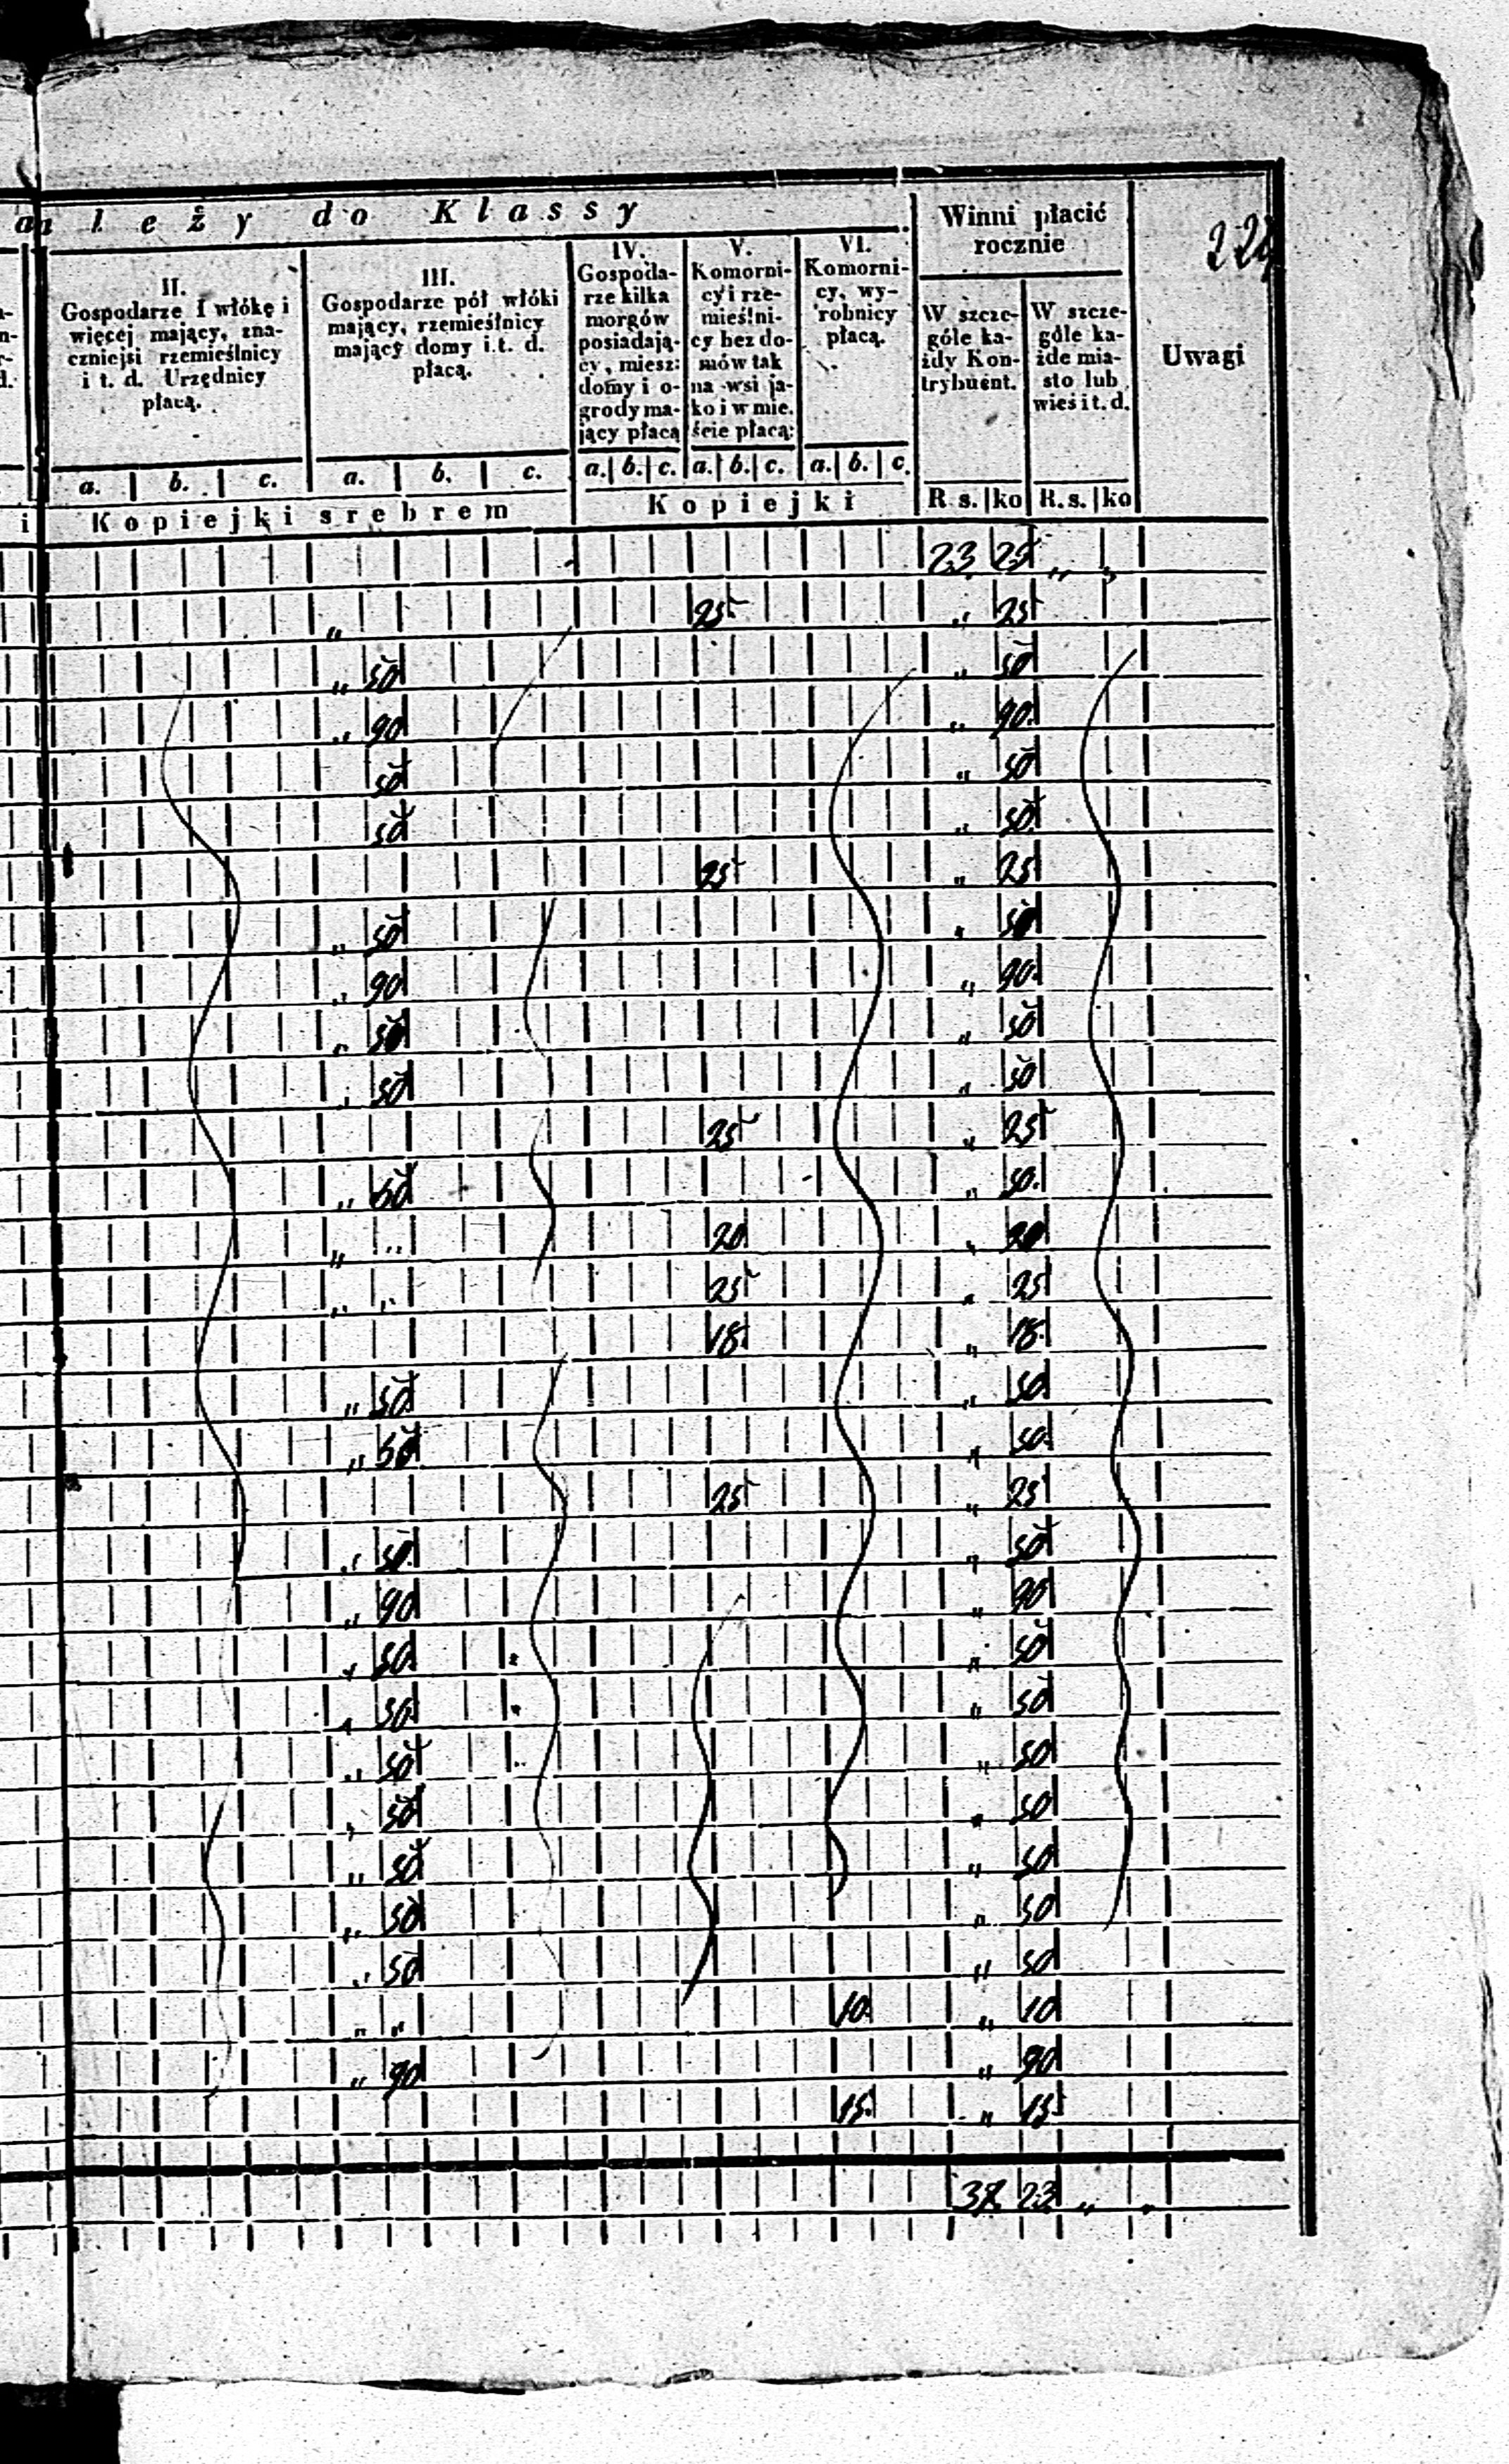 ależy do Klassy
Winni płacić
rocznie
224
II.
Gospodarze 1 włókę i
więcej mający, zna-
czniejsi rzemieślnicy
i t. d. Urzędnicy
płacą.
III.
Gospodarze pół włóki
mający, rzemieślnicy
mający domy i.t. d.
płacą.
IV.
Gospoda-
rze kilka
morgów
posiadają-
cy, miesz:
domy i o-
grody ma-
jący płacą
V.
Komorni-
cy i rze-
mieślni-
cy bez do-
mów tak
na wsi ja-
ko i w mie.
ście płacą:
VI.
Komorni-
cy, wy-
robnicy
płacą.
W szcze-
góle ka-
żdy Kon-
trybuent.
W szcze-
góle ka-
żde mia-
sto lub
wieś i t. d.
Uwagi
a. b. c. a. b. c. a. b. c. a. b. c. a. b. c.
i Kopiejki srebrem Kopiejki R. s. ko R. s. ko
23 25 „ „
„ 25 „ 25
„ 50 „ 50
„ 90 „ 90
50 „ 50
50 „ 50
25 „ 25
„ 50 „ 50
„ 90 „ 90
„ 50 „ 50
„ 50 „ 50
25 „ 25
„ 50 „ 50
„ „ 20 „ 20
„ „ 25 „ 25
18 „ 18
„ 50 „ 50
„ 50 „ 50
25 „ 25
„ 50 „ 50
„ 90 „ 90
„ 50 „ 50
„ 50 „ 50
„ 50 „ 50
„ 50 „ 50
„ 50 „ 50
„ 50 „ 50
„ 50 „ 50
„ „ 10 „ 10
„ 90 „ 90
15 „ 15
37 23 „ „